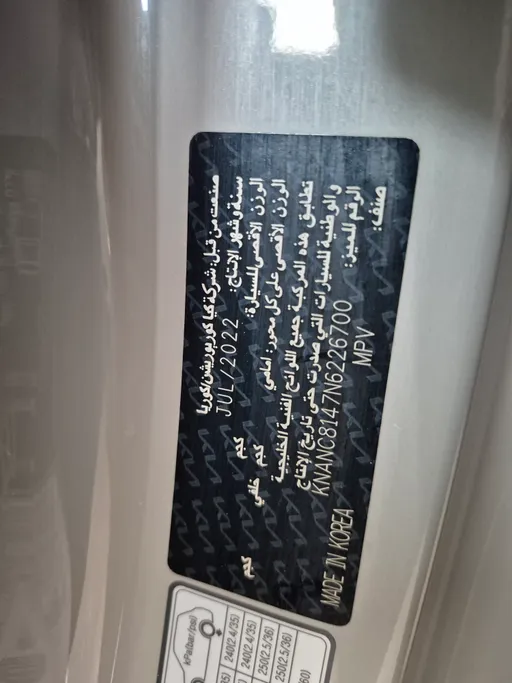 صنعت من قبل: شركة كيا كوربوريشن/كوريا
سنة وشهر الإنتاج: JUL/2022
الوزن الاقصى للسيارة: كجم
الوزن الاقصى على كل محور: امامي كجم خلفي كجم
تطابق هذه المركبة جميع اللوائح الفنية الخليجية
والوطنية للسيارات التي صدرت حتى تاريخ الإنتاج
الرقم المميز: KNANC8147N6226700
صنف: MPV
MADE IN KOREA
kPa(bar/psi)
240(2.4/35)
240(2.4/35)
250(2.5/36)
250(2.5/36)